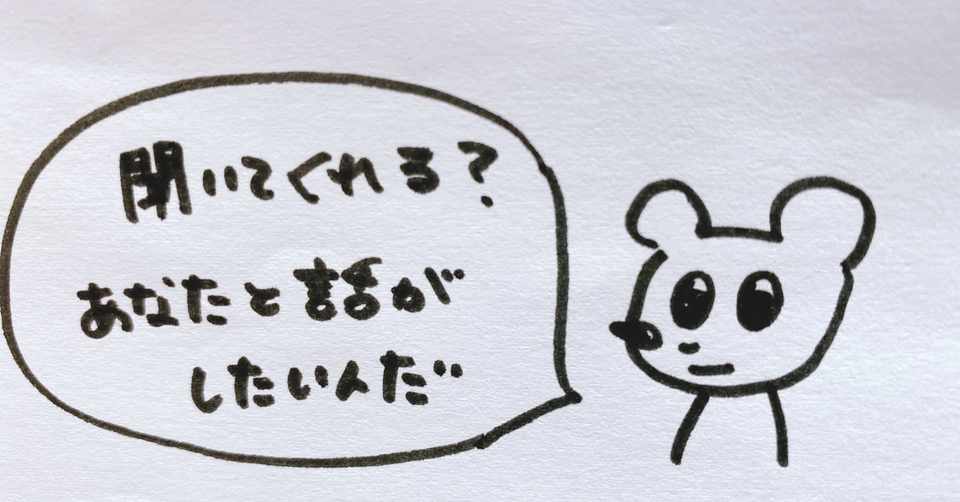 聞いてくれる?
あなたと話が
したいんだ